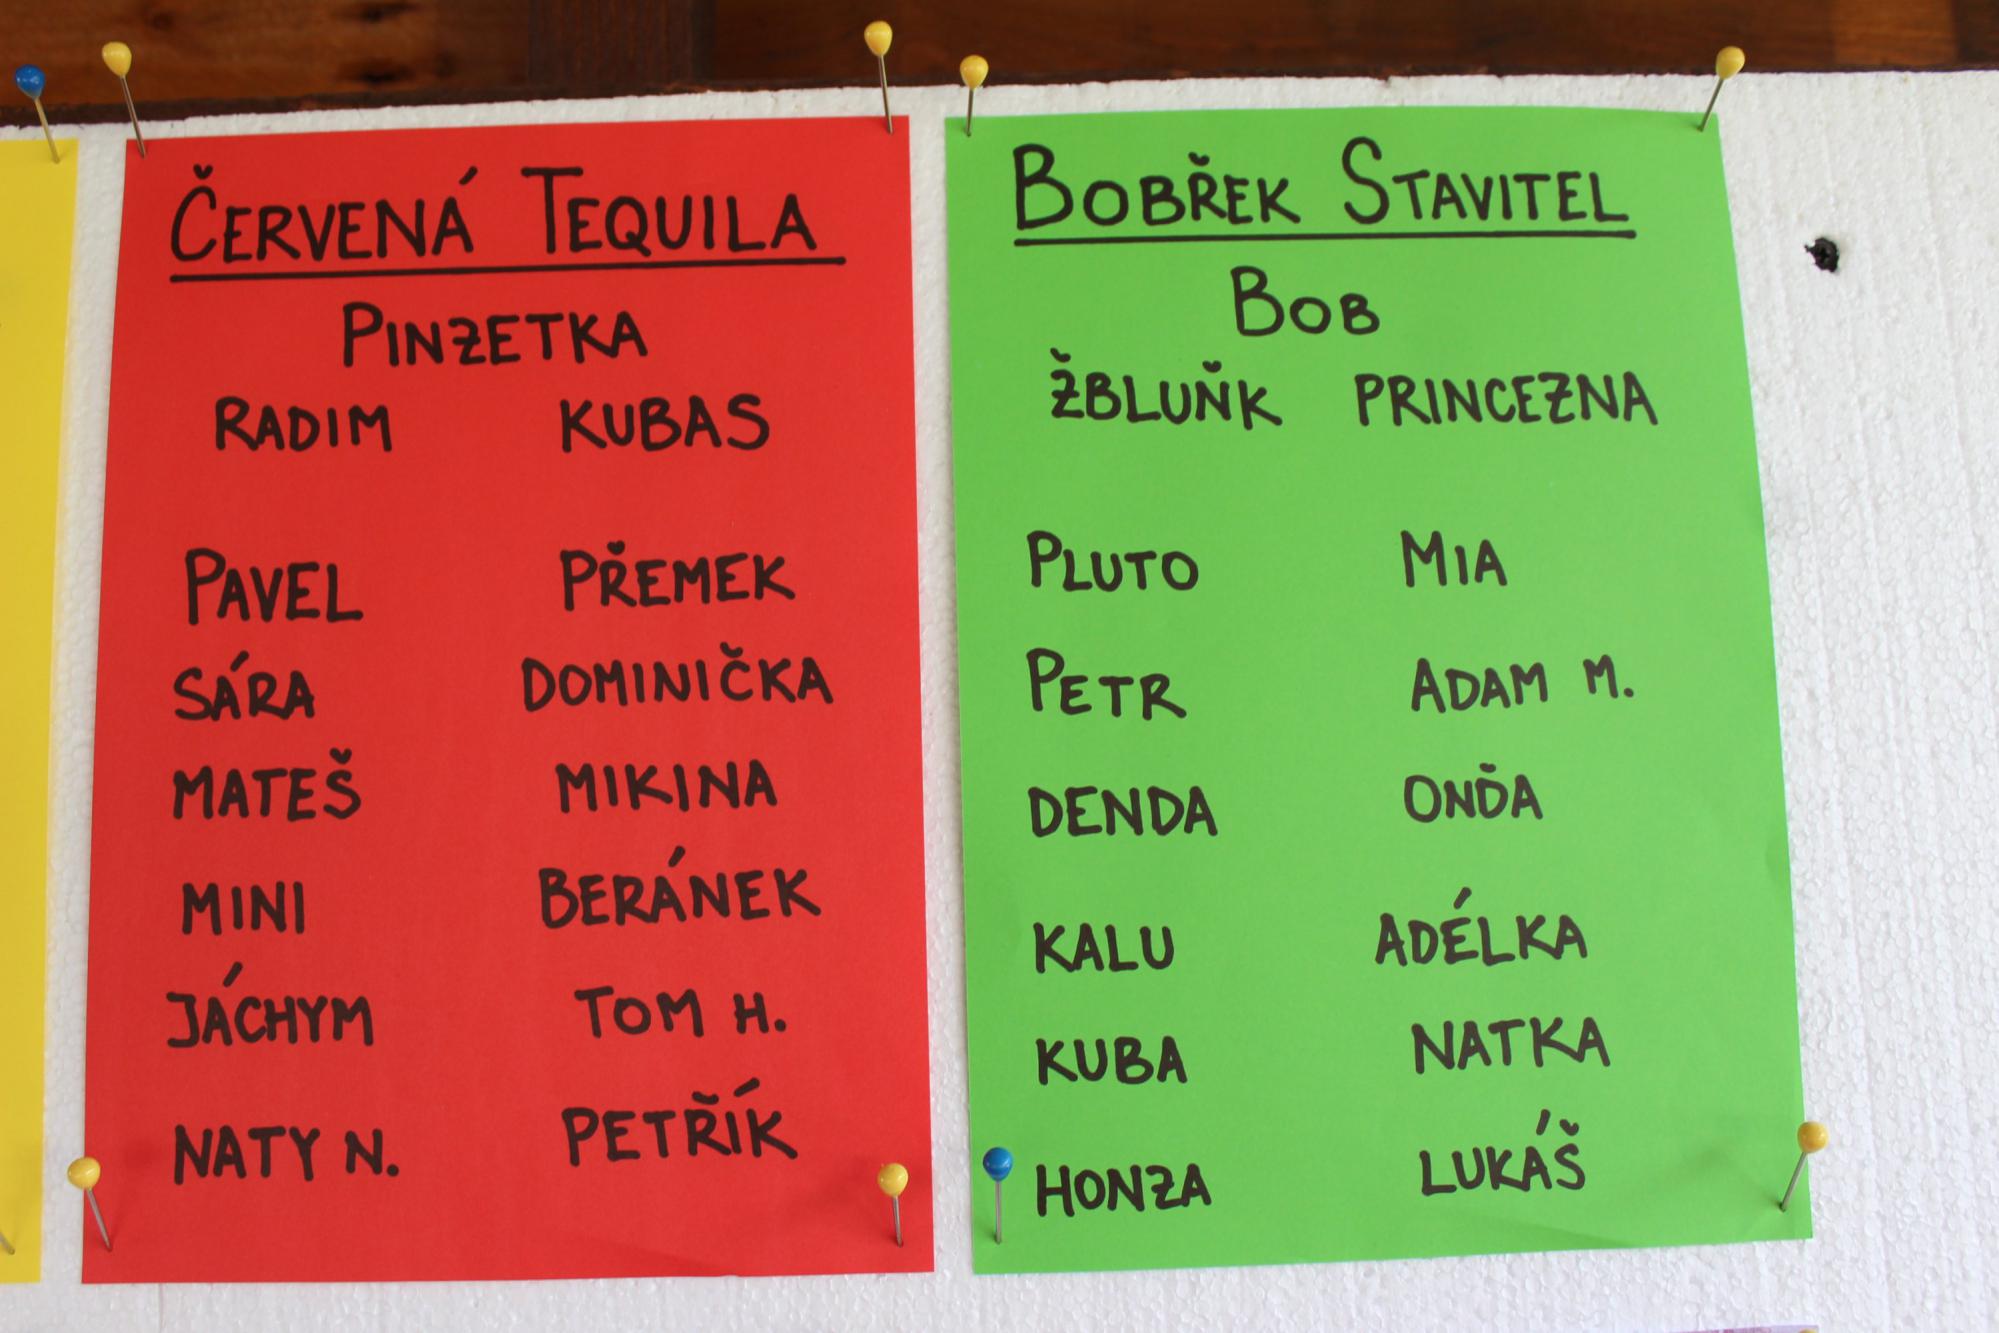 ČERVENÁ TEQUILA
PINZETKA
RADIM KUBAS
PAVEL PŘEMEK
SÁRA DOMINIČKA
MATEŠ MIKINA
MINI BERÁNEK
JÁCHYM TOM H.
NATY N. PETŘÍK
BOBŘEK STAVITEL
BOB
ŽBLUŇK PRINCEZNA
PLUTO MIA
PETR ADAM M.
DENDA ONĎA
KALU ADÉLKA
KUBA NATKA
HONZA LUKÁŠ